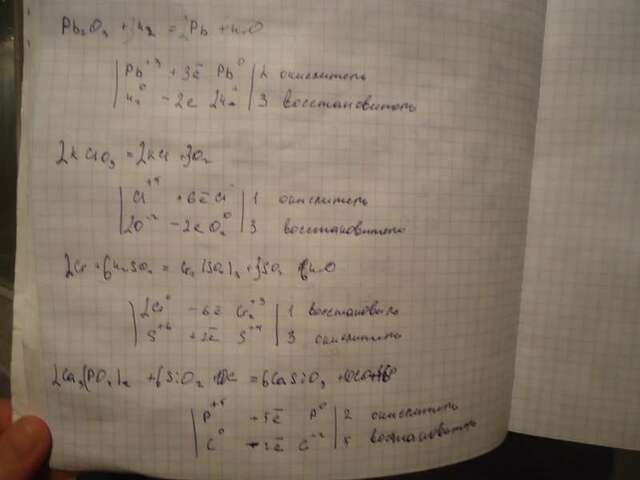 Pb₂O₃ + 3H₂ = 2Pb + H₂O
Pb⁺³ + 3ē Pb⁰ | 2 окислитель
H₂⁰ - 2ē 2H⁺ | 3 восстановитель
2KClO₃ = 2KCl + 3O₂
Cl⁺⁵ + 6ē Cl⁻ | 1 окислитель
2O⁻² - 2ē O₂⁰ | 3 восстановитель
2Cr + 6H₂SO₄ = Cr₂(SO₄)₃ + 3SO₂ 6H₂O
2Cr⁰ - 6ē Cr₂⁺³ | 1 восстановитель
S⁺⁶ + 2ē S⁺⁴ | 3 окислитель
2Ca₃(PO₄)₂ + 6SiO₂ = 6CaSiO₃
P⁺⁵ + 5ē P⁰ | 2 окислитель
C⁰ - 2ē C⁺² | 5 восстановитель